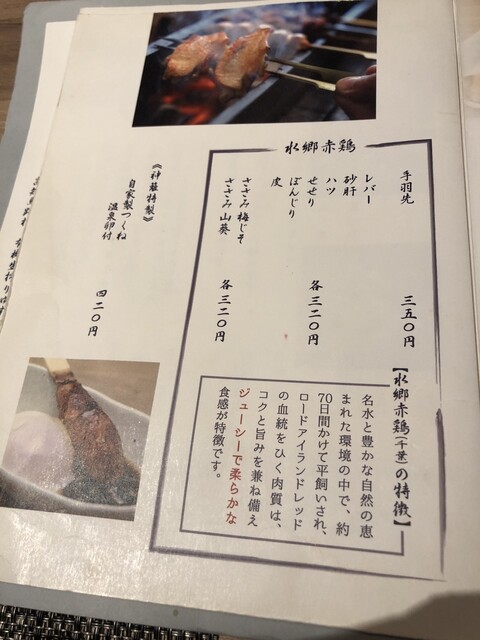 水郷赤鶏
手羽先
三五〇円
レバー
砂肝
ハツ
せせり
ぼんじり
皮
各三二〇円
ささみ梅じそ
ささみ山葵
各三二〇円
【水郷赤鶏(千葉)の特徴】
名水と豊かな自然の恵
まれた環境の中で、約
70日間かけて平飼いされ、
ロードアイランドレッド
の血統をひく肉質は、
コクと旨みを兼ね備え
ジューシーで柔らかな
食感が特徴です。
《神蔵特製》
自家製つくね
温泉卵付
四二〇円